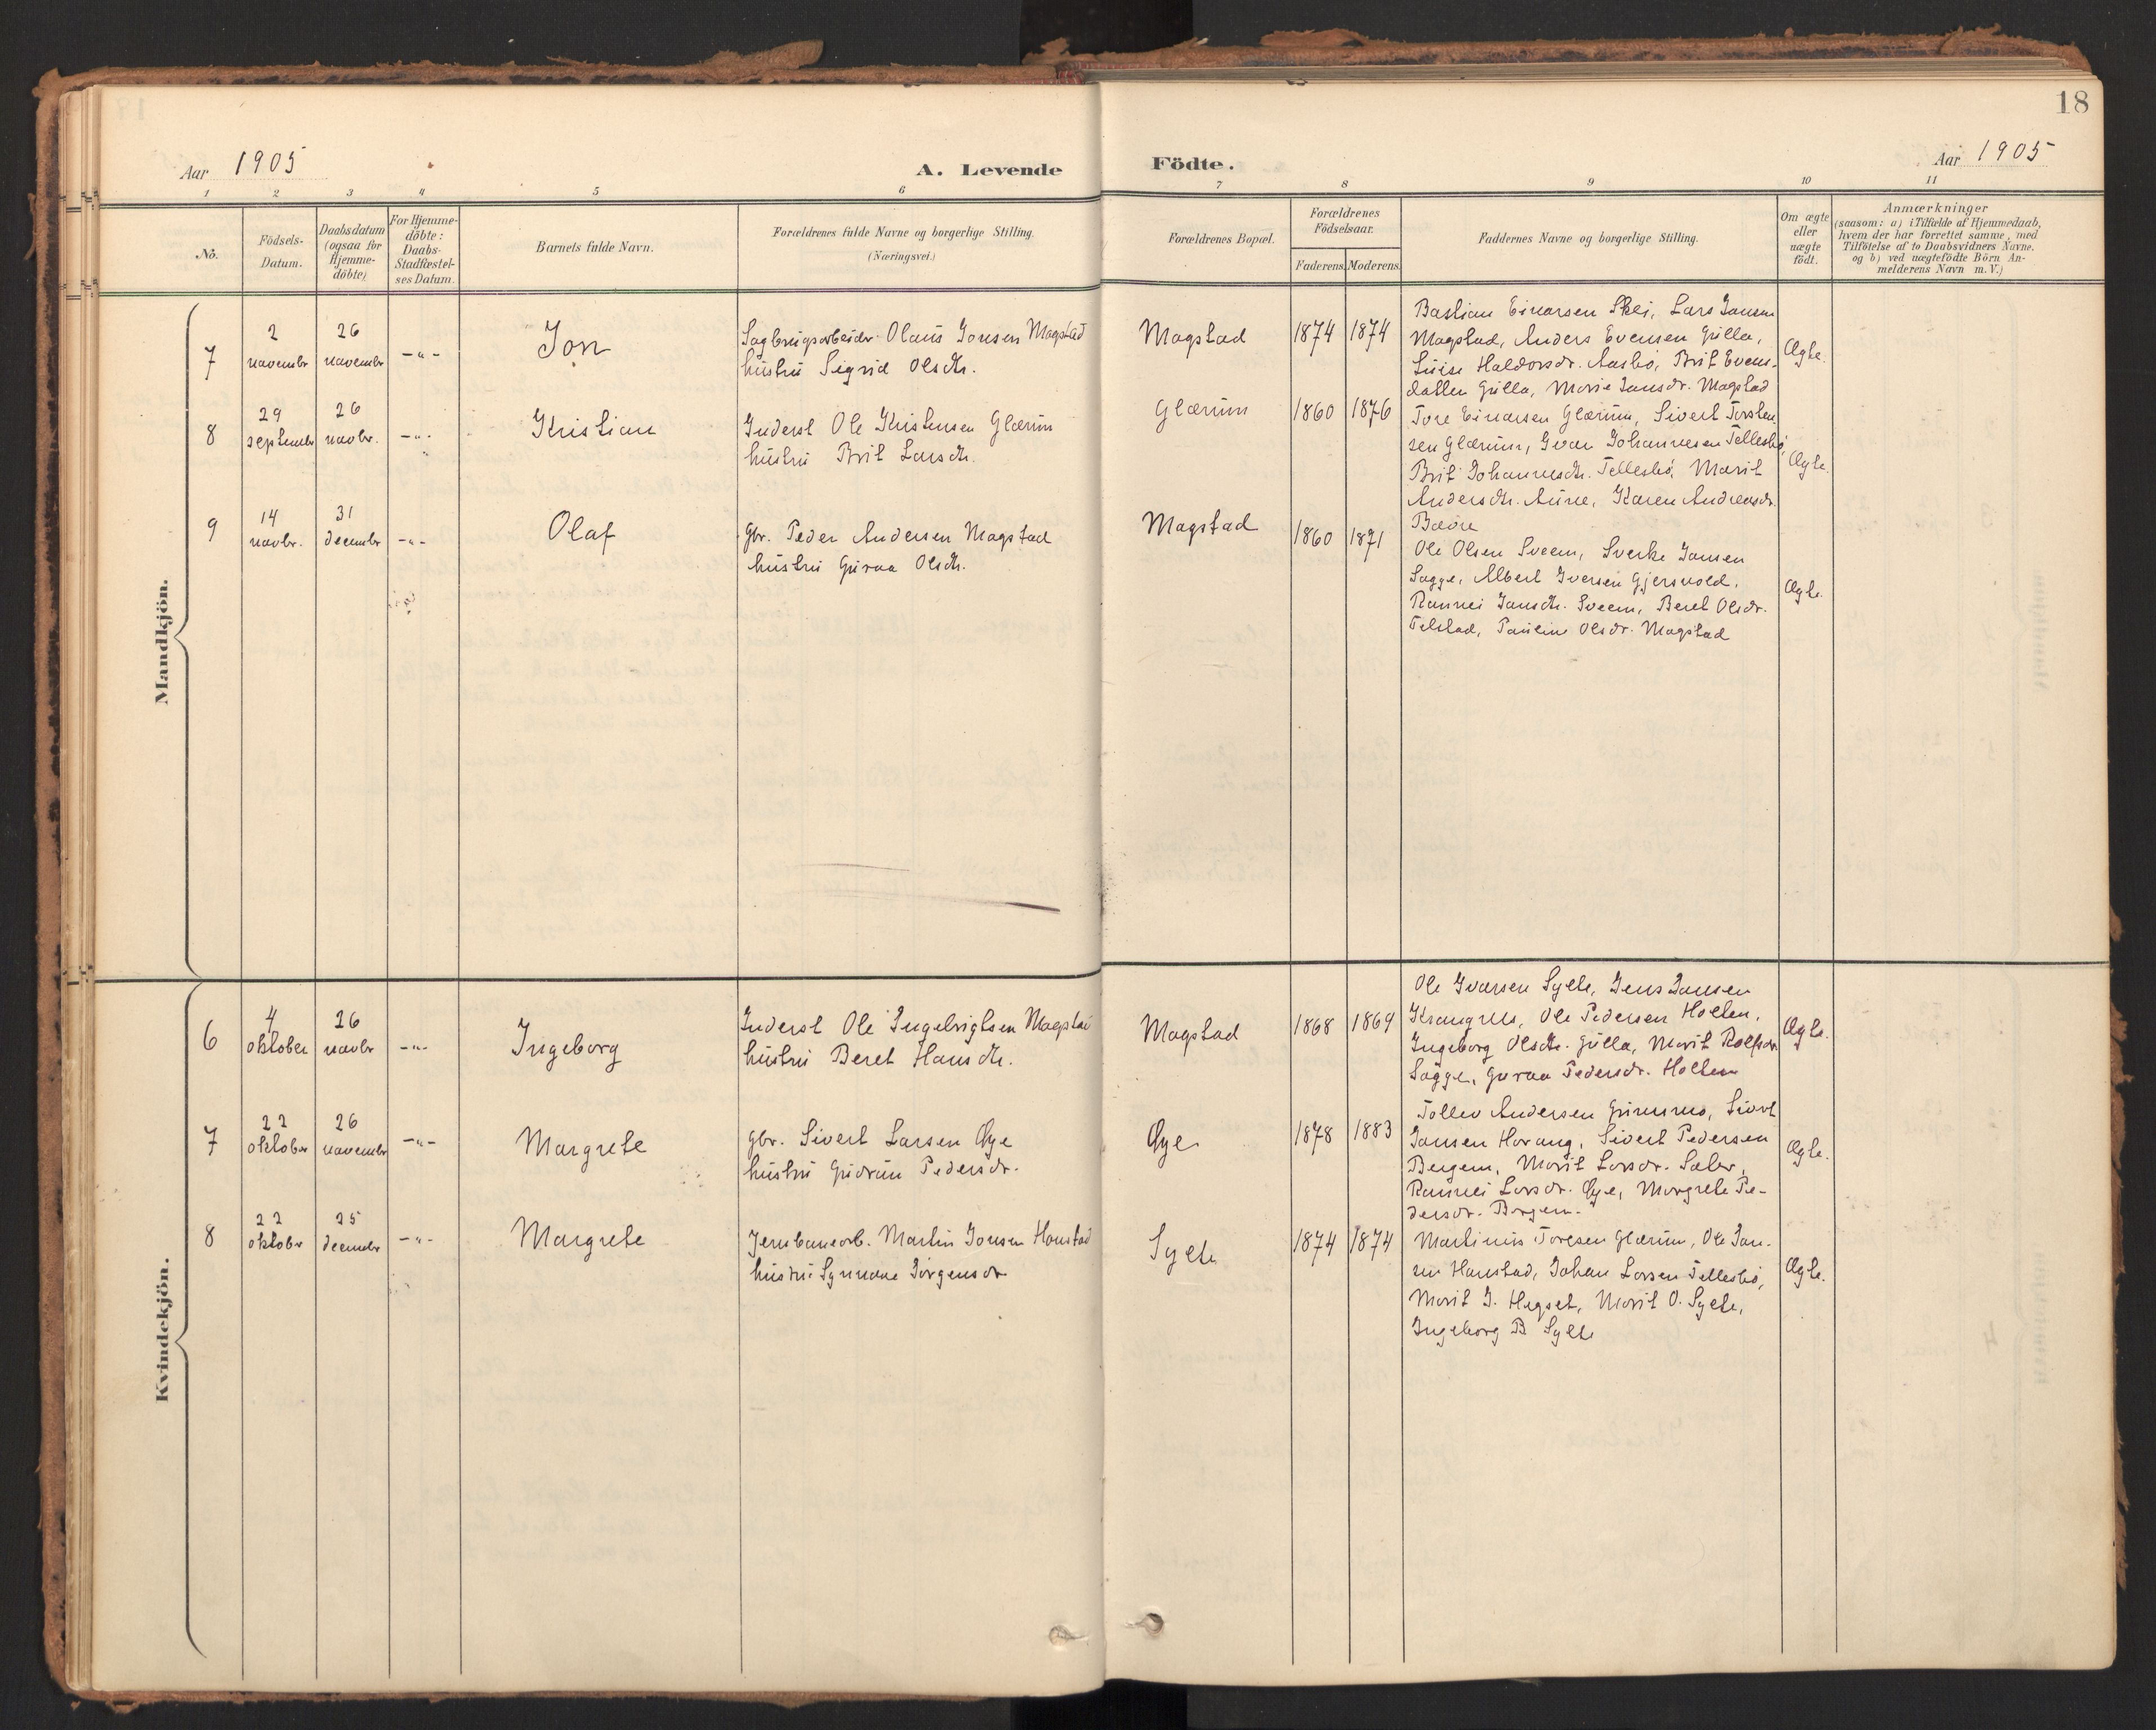 18
Aar 1905
A. Levende Födte.
Aar 1905
1 2 3 4 5 6 7 8 9 10 11
No.
Födsels-
Datum.
Daabsdatum
(ogsaa for
Hjemme-
döbte)
For Hjemme-
döbte:
Daabs-
Stadfæstel-
ses Datum.
Barnets fulde Navn.
Forældrenes fulde Navne og borgerlige Stilling.
(Næringsvei.)
Forældrenes Bopæl.
Forældrenes
Födselsaar.
Faderens. Moderens.
Faddernes Navne og borgerlige Stilling.
Om ægte
eller
uægte
födt.
Anmærkninger
(saasom: a) i Tilfælde af Hjemmedaab,
hvem der har forrettet samme, med
Tilföielse af to Daabsvidners Navne.
og b) ved uægtefödte Börn An-
melderens Navn m. V.)
Mandkjön.
7
2
november
26
november
-"-
Jon
Sagbrugsarbeider Olaus Jonsen Magstad
hustru Sigrid Olsdtr.
Magstad
1874 1874
Bastian Einarsen Skei, Lars Jonsen
Magstad, Anders Evensen Gulla,
Luise Haldorsdr. Aasbö, Brit Evens-
datter Gulla, Marie Jonsdr. Magstad
Ægte.
8
29
september
26
novbr.
-"-
Kristian
Inderst Ole Kristensen Glærum
hustru Brit Larsdtr.
Glærum
1860 1876
Tore Einarsen Glærum, Sivert Torsten
sen Glærum, Ivar Johannesen Tellesbö,
Brit Johannesdtr. Tellesbö, Marit
Andersdtr. Aune, Karen Andreasdr.
Bævre
Ægte.
9
14
novbr.
31
december
-"-
Olaf
gbr. Peder Andersen Magstad
hustru Guroa Olsdtr.
Magstad
1860 1871
Ole Olsen Sveen, Sverke Jonsen
Sagge, Albert Iversen Gjersvold,
Rannei Jonsdtr. Sveen, Beret Olsdr.
Telstad, Pauline Olsdr. Magstad
Ægte.
Kvindekjön.
6
4
oktober
26
novbr
-"-
Ingeborg
Inderst Ole Ingebrigtsen Magstad
hustru Beret Hansdtr.
Magstad
1868 1869
Ole Ivarsen Sylte, Jens Jansen
Krangnes, Ole Pedersen Holten,
Ingeborg Olsdtr. Gulla, Marit Rolfsdr.
Sagge, Guroa Pedersdr. Holten
Ægte.
7
22
oktober
26
november
-"-
Margrete
gbr. Sivert Larsen Öye
hustru Gudrun Pedersdr.
Öye
1878 1883
Tollev Andersen Grimsmo, Sivert
Jonsen Horang, Sivert Pedersen
Bergem, Marit Larsdr. Sæter,
Rannei Larsdr. Öye, Margrete Pe-
dersdr. Bergem.
Ægte.
8
22
oktober
25
december
-"-
Margrete
Jernbanearb. Martin Jonsen Honstad
hustru Synnøve Jørgensdr
Sylte
1874 1874
Martinus Toresen Glærum, Ole Jon-
sen Honstad, Johan Larsen Tellesbö,
Marit J. Hegset, Marit O. Sylte,
Ingeborg B Sylte
Ægte.